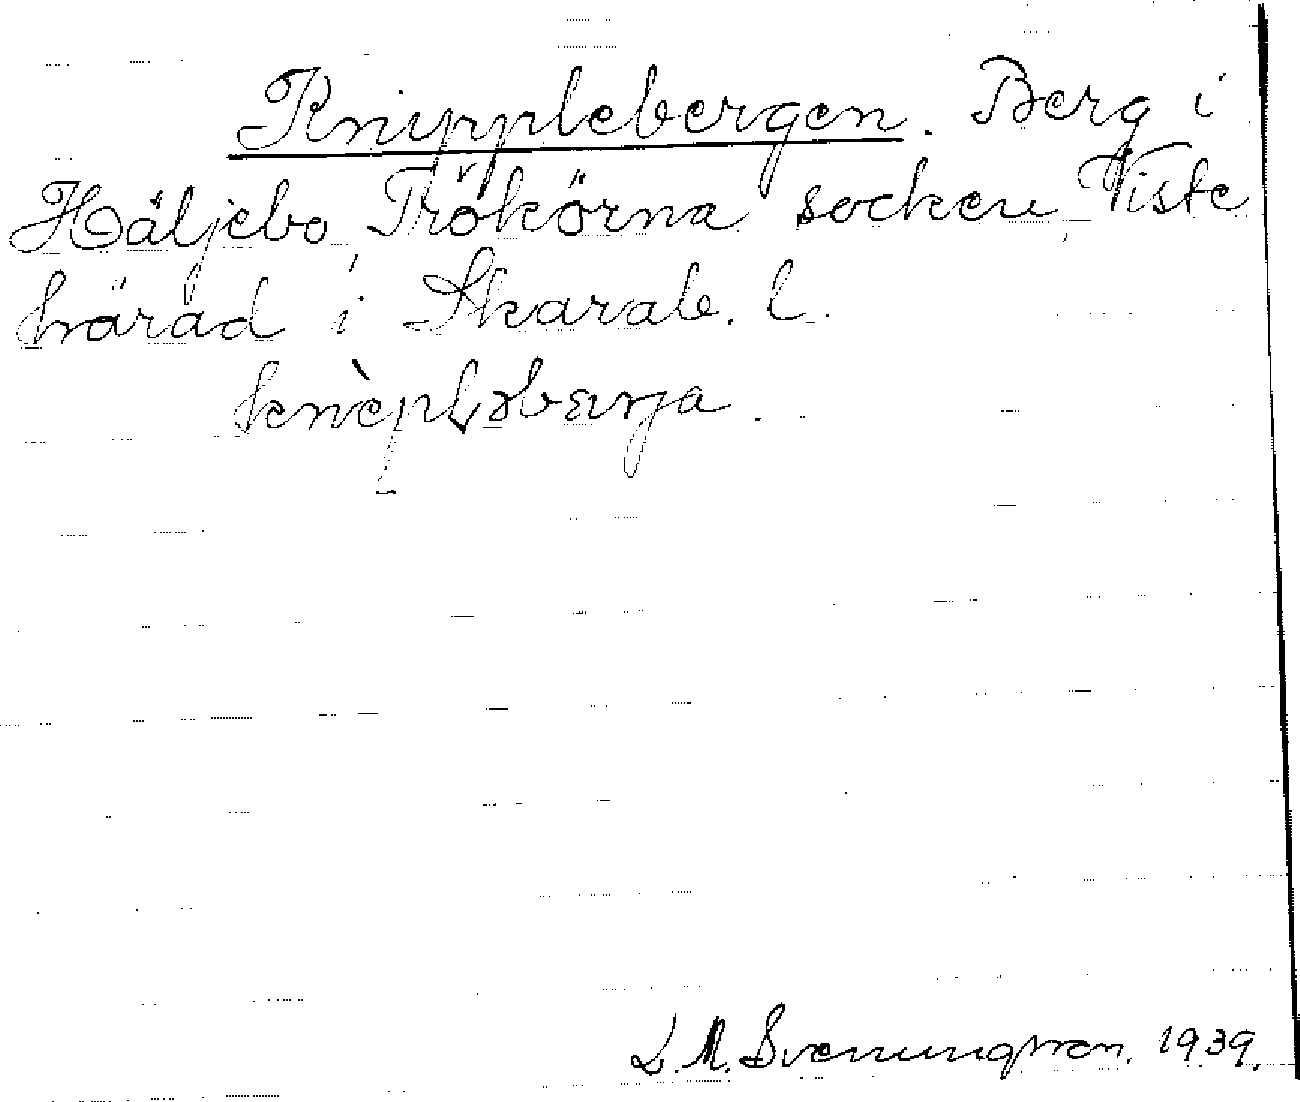 Knypplebergen. Berg i
Häljebo, Trökörna socken, Viste
härad i Skarab. l.
knèpləbærja.
L. M. Svenungsson. 1939.